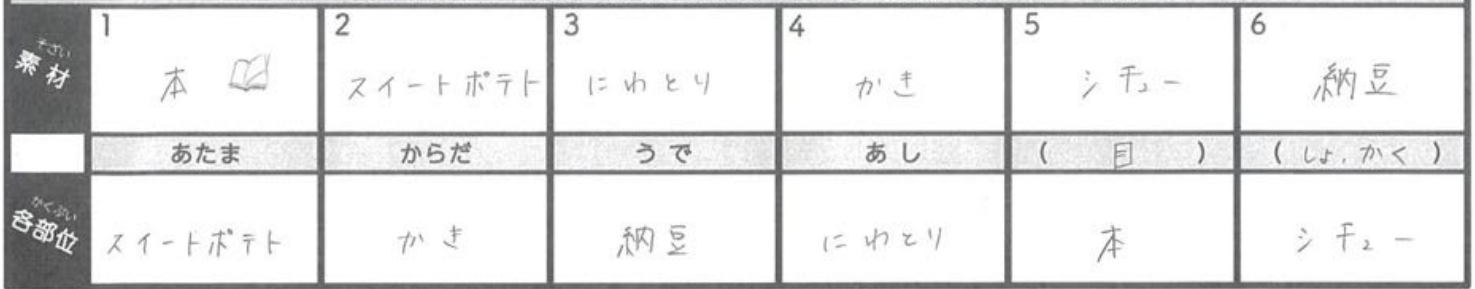 1 2 3 4 5 6
そざい
素材 本 スイートポテト にわとり かき シチュー 納豆
あたま からだ うで あし ( 目 ) ( しょ.かく )
かくぶい
各部位 スイートポテト かき 納豆 にわとり 本 シチュー